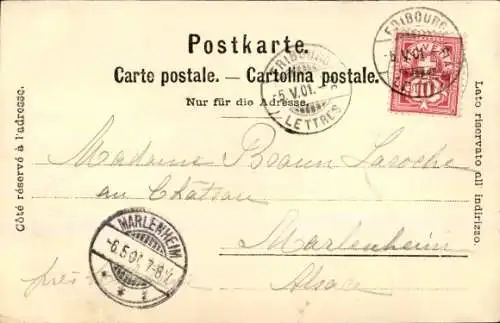 Postkarte.
Carte postale. — Cartolina postale.
Nur für die Adresse.
Côté réservé à l'adresse.
Lato riservato all' indirizzo.
FRIBOURG
-5.V.01.
LETTRES
FRIBOURG
-5.V.01
HELVETIA
10
Madame Braun Laroche
au Château
Marlenheim
près
Alsace
MARLENHEIM
-6.5.01.7-8V.